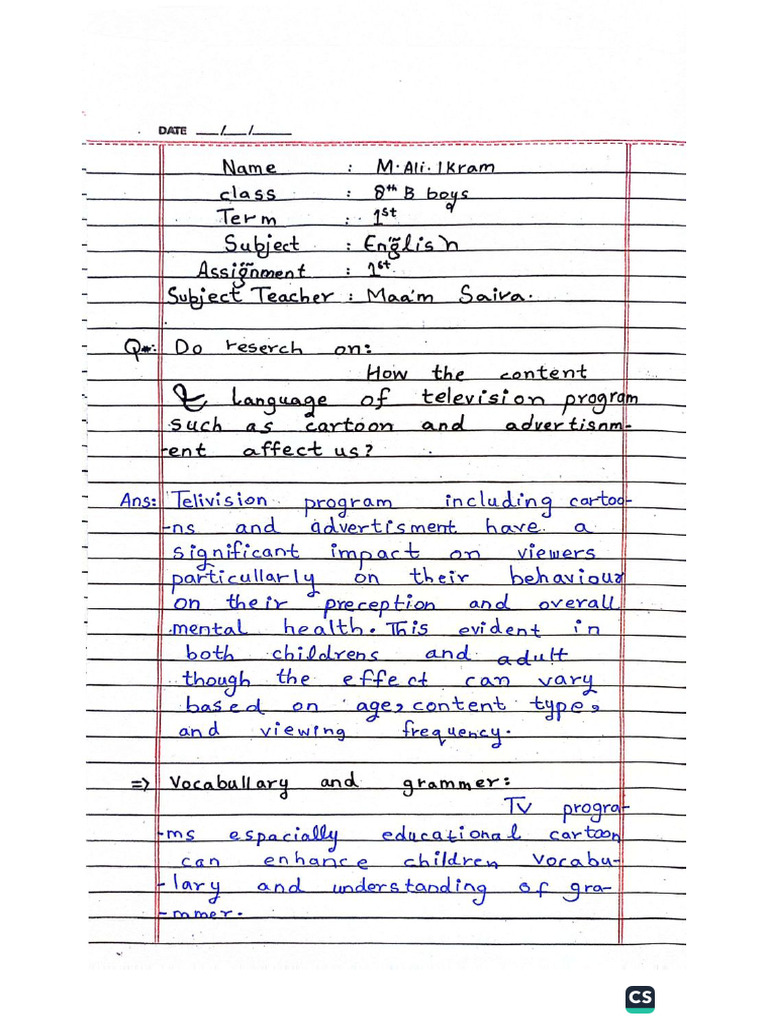 DATE __/__/____
Name : M.Ali.Ikram
class : 8th B boys
Term : 1st
Subject : English
Assignment : 1st
Subject Teacher : Maa'm Saira.
Q: Do reserch on:
How the content
& language of television program
such as cartoon and advertisnm-
-ent affect us?
Ans: Telivision program including cartoo-
-ns and advertisment have a
significant impact on viewers
particullarly on their behaviour
on their preception and overall
mental health. This evident in
both childrens and adult
though the effect can vary
based on age, content type,
and viewing frequency.
=> Vocabullary and grammer:
TV progra-
-ms espacially educational cartoon
can enhance children vocabu-
-lary and understanding of gra-
-mmer.
CS